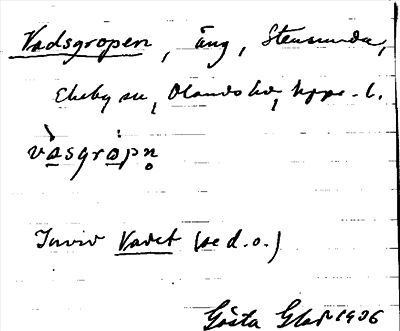 Vadsgropen, äng, Stensunda,
Ekeby sn, Olands hd, Upps. l.
vàsgròpn̥
Invid Vadet (se d. o.)
Gösta 1906